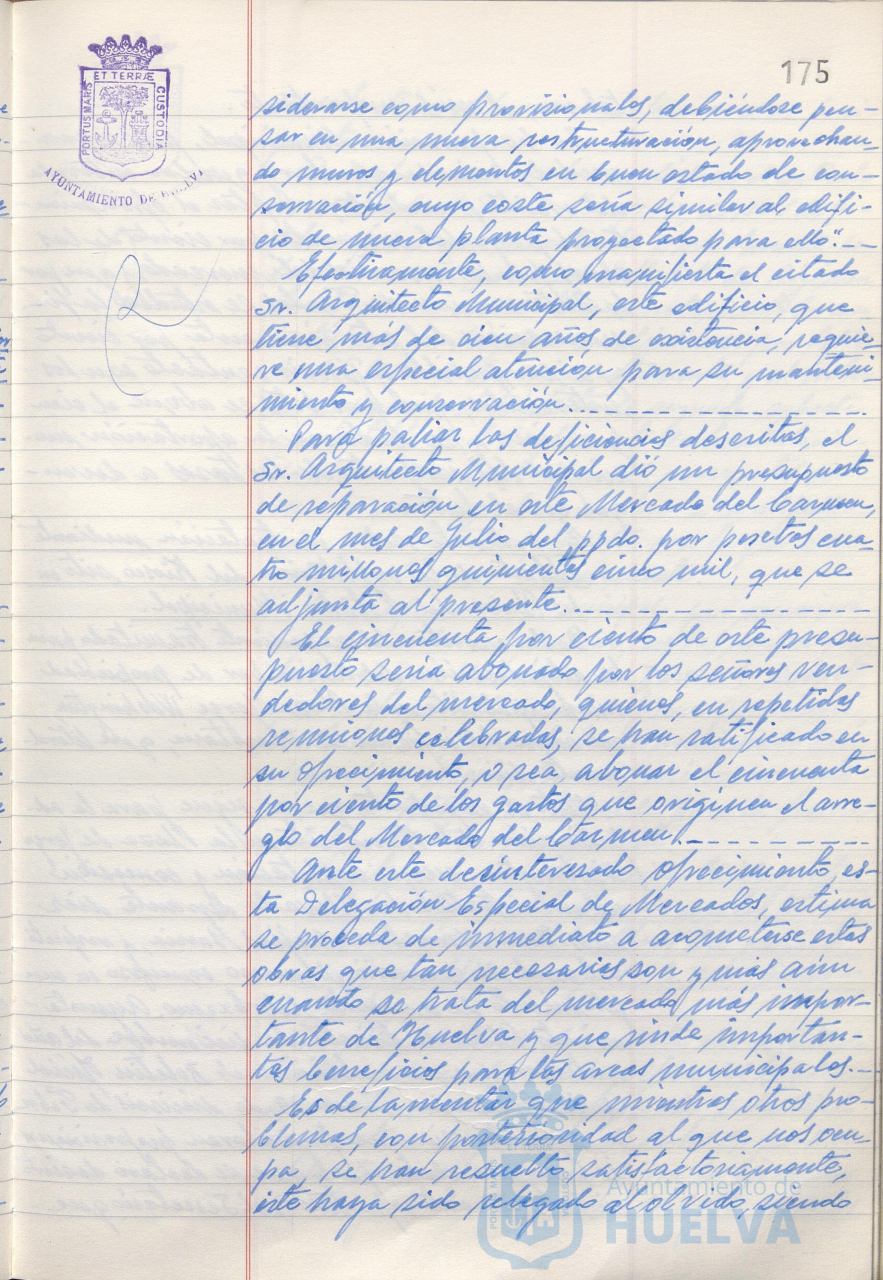 175
PORTUS MARIS ET TERRÆ CUSTODIA
AYUNTAMIENTO DE HUELVA
siderarse como provisionales, debiéndose pen-
sar en una nueva restructuración, aprovechan-
do muros y elementos en buen estado de con-
servación, cuyo coste sería similar al edifi-
cio de nueva planta proyectado para ello".--
Efectivamente, como manifiesta el citado
Sr. Arquitecto Municipal, este edificio, que
tiene más de cien años de existencia, requie-
re una especial atención para su manteni-
miento y conservación.
Para paliar las deficiencias descritas, el
Sr. Arquitecto Municipal dió un presupuesto
de reparación en este Mercado del Carmen,
en el mes de Julio del ppdo. por pesetas cua-
tro millones quinientas cinco mil, que se
adjunta al presente.
El cincuenta por ciento de este presu-
puesto sería abonado por los señores ven-
dedores del mercado, quienes, en repetidas
reuniones celebradas, se han ratificado en
su ofrecimiento, o sea, abonar el cincuenta
por ciento de los gastos que originen el arre-
glo del Mercado del Carmen.
Ante este desinteresado ofrecimiento, es-
ta Delegación Especial de Mercados, estima
se proceda de inmediato a acometerse estas
obras que tan necesarias son y más aún
cuando se trata del mercado más impor-
tante de Huelva y que rinde importan-
tes beneficios para las arcas municipales.--
Es de lamentar que mientras otros pro-
blemas, con posterioridad al que nos ocu-
pa, se han resuelto satisfactoriamente,
éste haya sido relegado al olvido, siendo
Ayuntamiento de
HUELVA